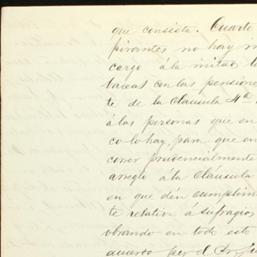 que consista. Cuarto
pirantes no hay in
cargo á la mitad t
tareas con las pensione
te de la Cláusula 4ta
á las personas que en
co lo hay para que en
conor prudencialmente
arreglo á la Cláusula
en que dén cumplim
te relativ á sufragios
obrando en todo este
cuarto por el Sr. Ju